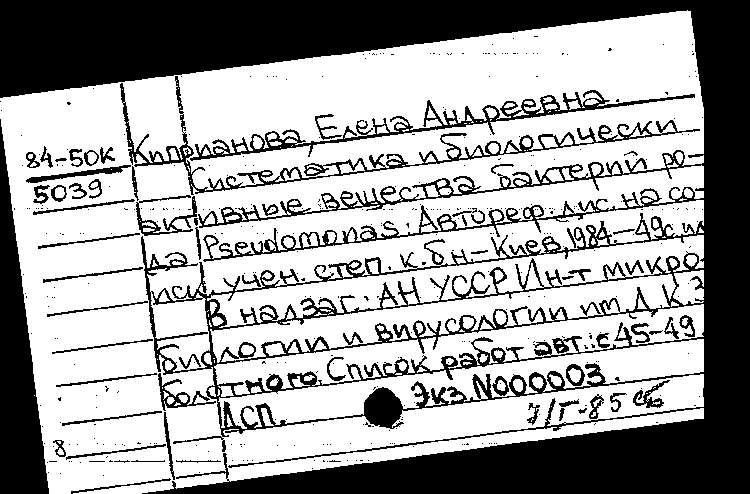 84-50К
5039
Киприанова, Елена Андреевна.
Систематика и биологически
активные вещества бактерий ро-
да Pseudomonas: Автореф. дис. на со-
иск. учен. степ. к. б. н. - Киев, 1984. - 49с, ил
В надзаг.: АН УССР, Ин-т микро-
биологии и вирусологии им. Д. К. З
болотного. Список работ авт.: с. 45-49.
ДСП. Экз. N000003.
8